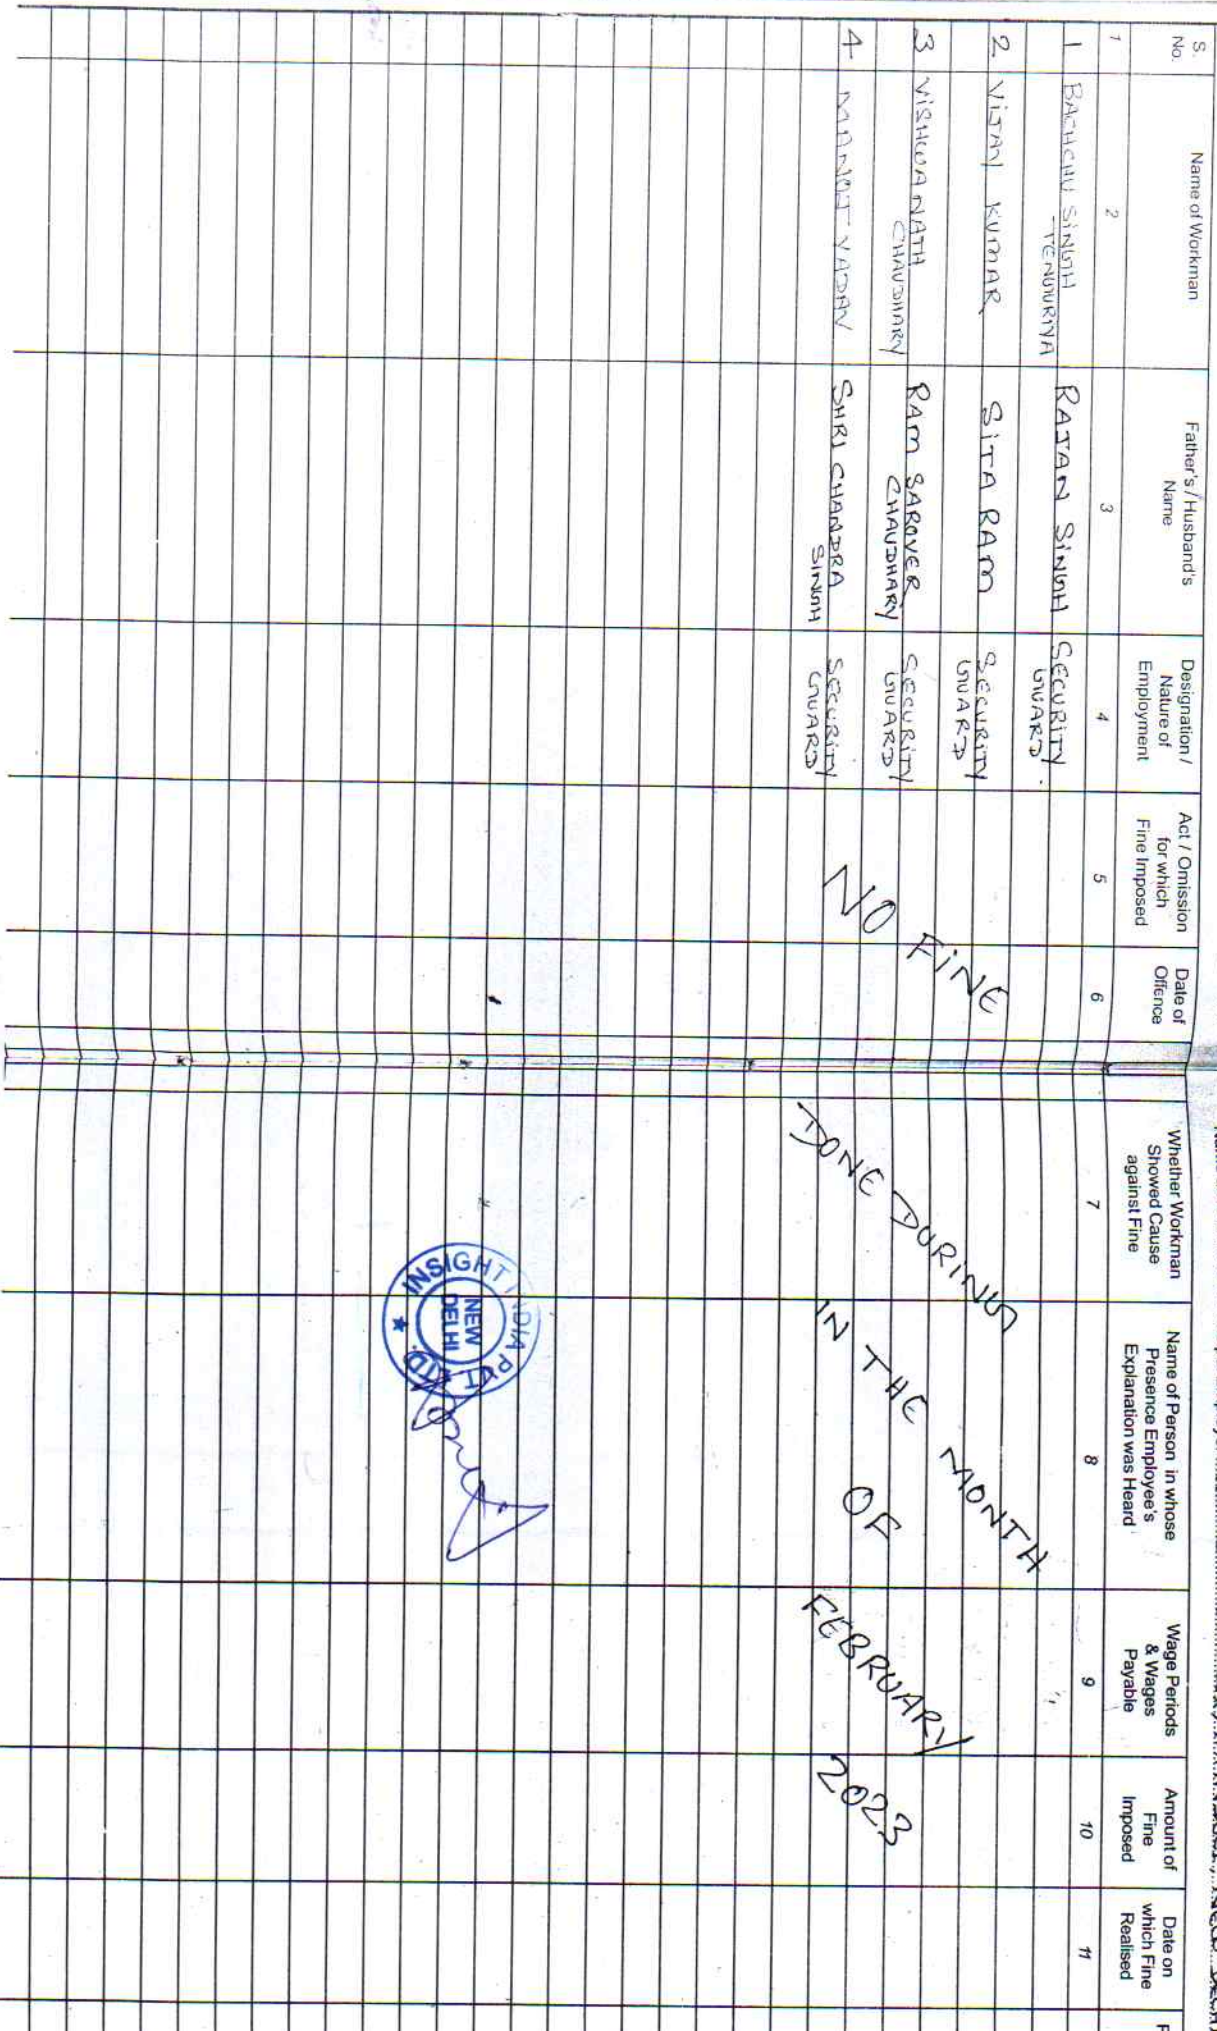 S. No.
Name of Workman
Father's / Husband's Name
Designation / Nature of Employment
Act / Omission for which Fine Imposed
Date of Offence
Whether Workman Showed Cause against Fine
Name of Person in whose Presence Employee's Explanation was Heard
Wage Periods & Wages Payable
Amount of Fine Imposed
Date on which Fine Realised
1 2 3 4 5 6 7 8 9 10 11
1 BACHCHU SINGH TENGURIYA RAJAN SINGH SECURITY GUARD
2 VIJAY KUMAR SITA RAM SECURITY GUARD
3 VISHWANATH CHAUDHARY RAM SAROVER CHAUDHARY SECURITY GUARD
4 MANOJ YADAV SHRI CHANDRA SINGH SECURITY GUARD
NO FINE DONE DURING IN THE MONTH OF FEBRUARY 2023
INSIGHT INDIA PVT. LTD.
NEW DELHI